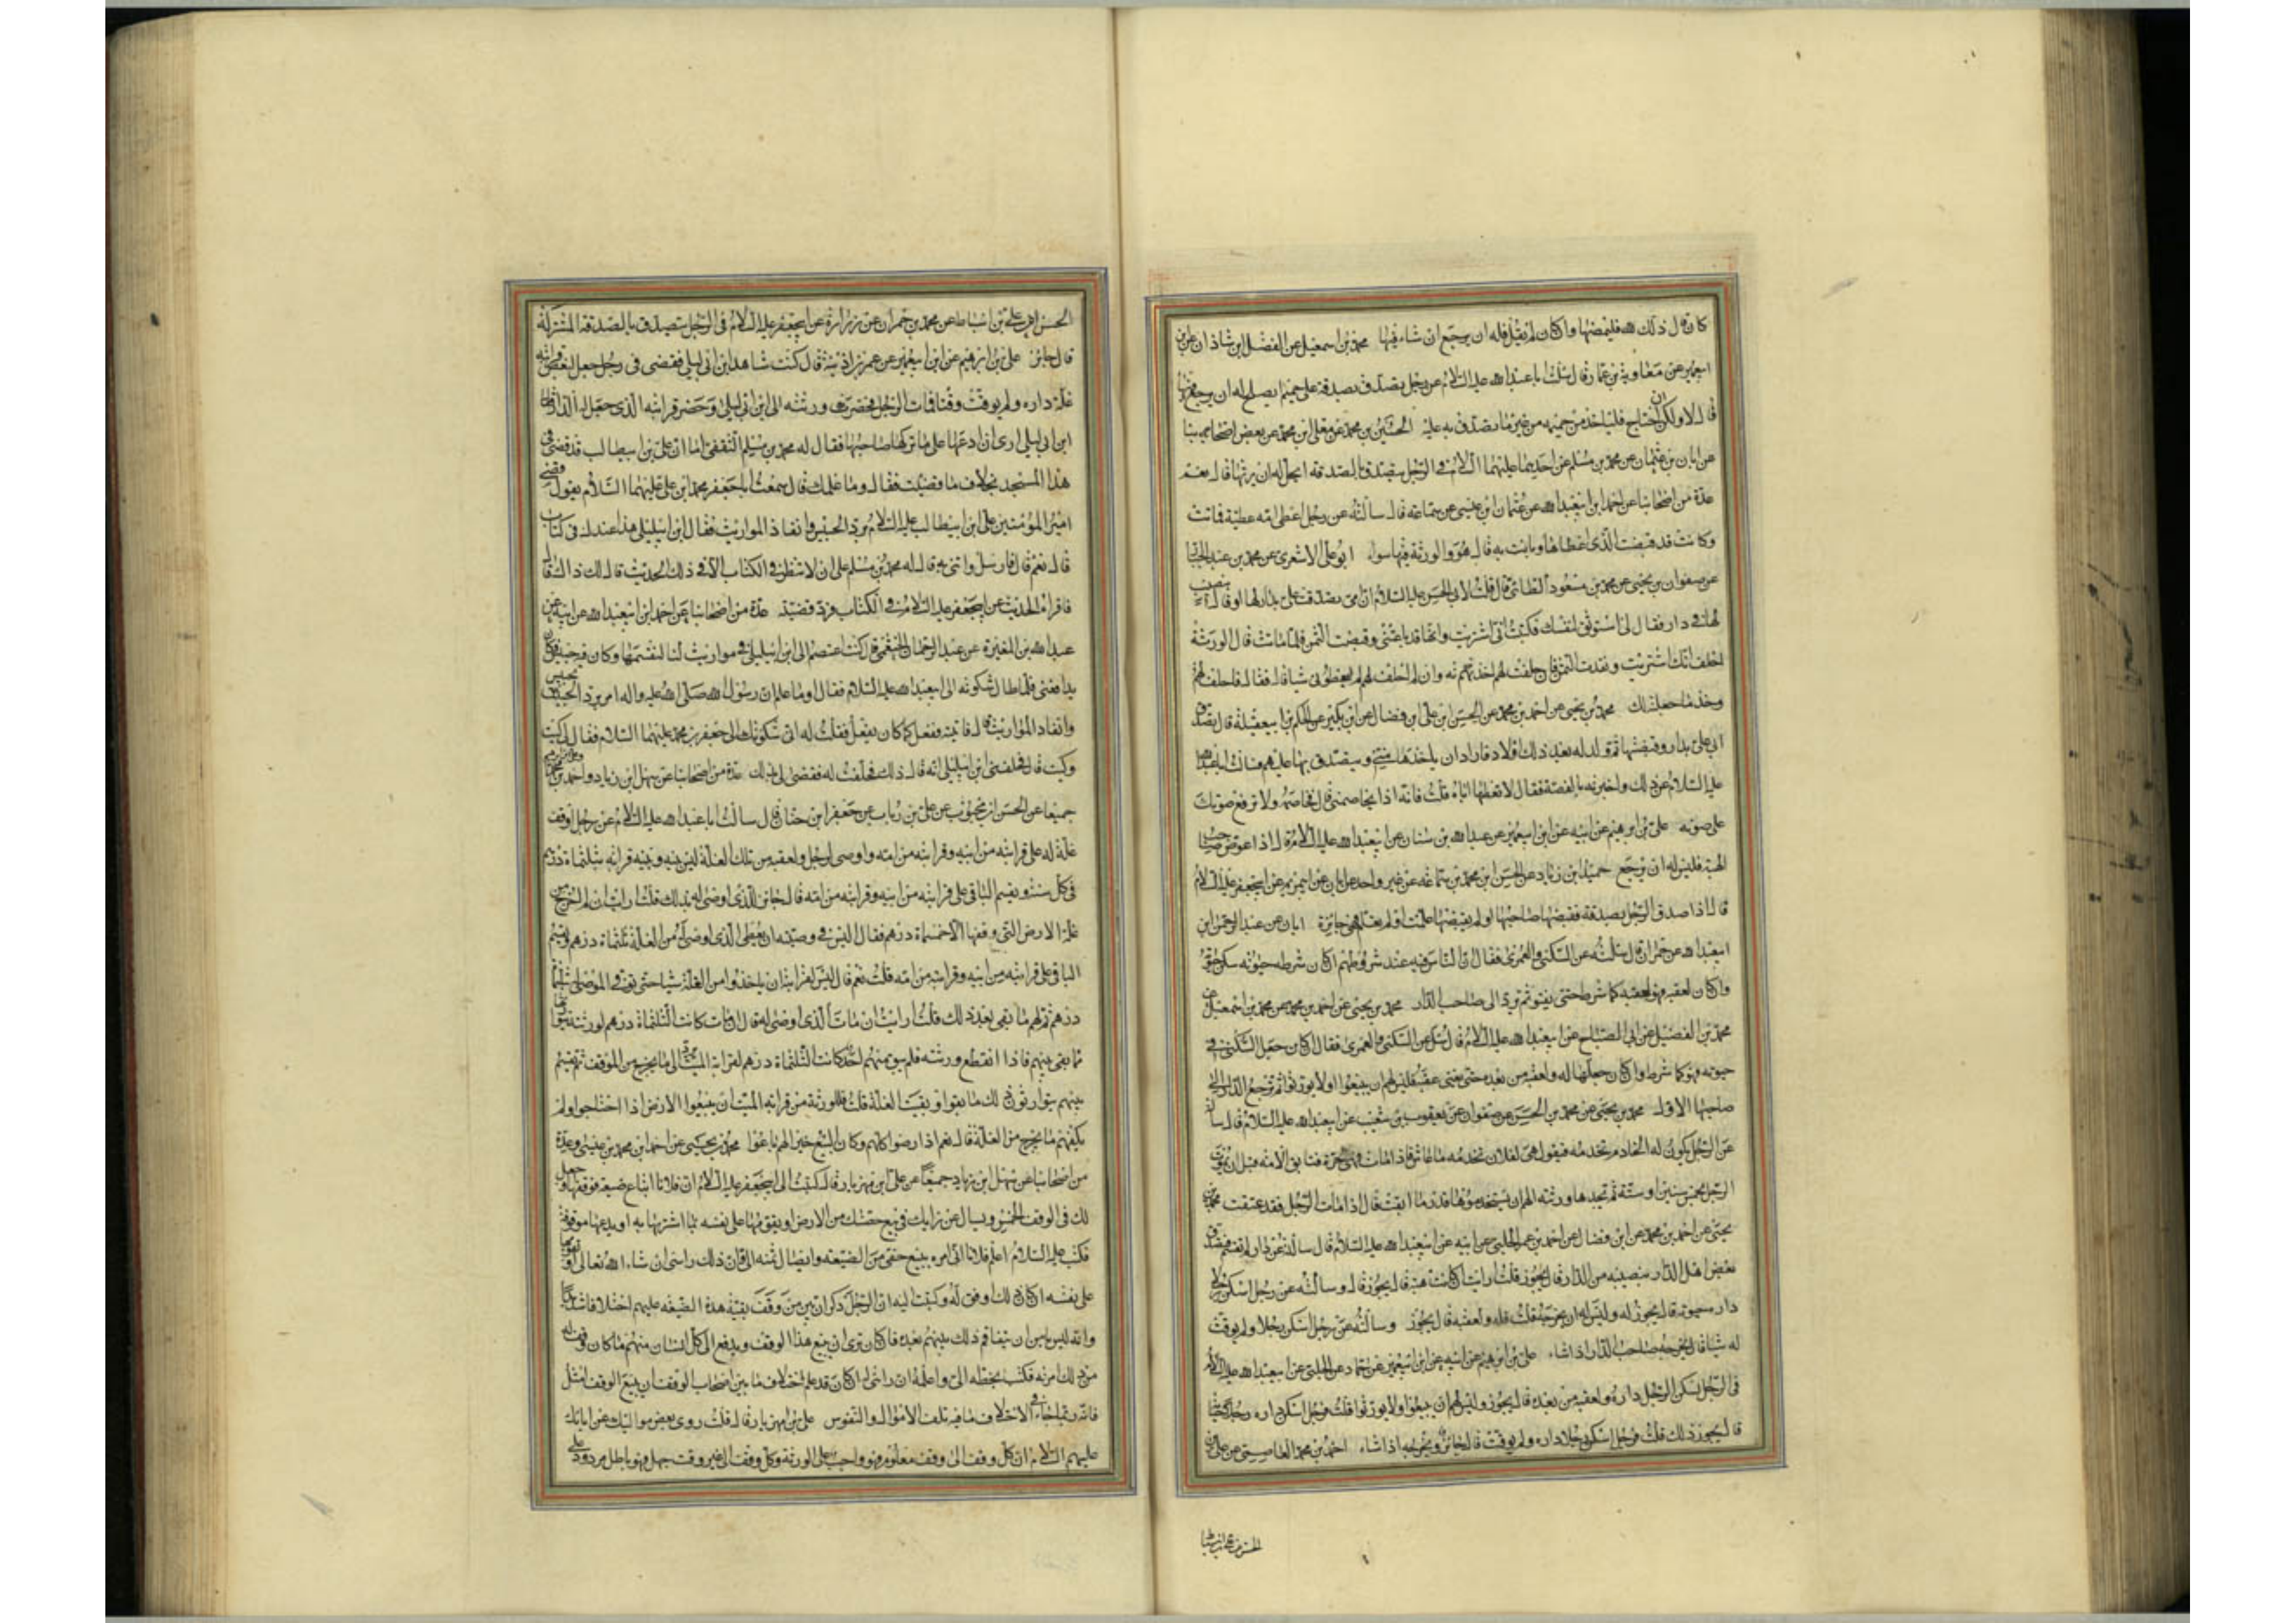 كان قال ذلك لله فليمضها وان كان لم يقل فله ان يرجع ان شاء فيها محمد بن اسمعيل عن الفضل ابن شاذان عن ابن
ابيعمير عن معاوية بن عمار قال سئلت ابا عبد الله عليه السلام عن رجل يصدق بصدقة على حميم ايصلح له ان يرجع فيها
قال لا ولكن ان احتاج فلياخذ من حميمه من غير ما تصدق به عليه الحسين بن محمد عن معلى ابن محمد عن بعض اصحابه
عن ابان بن عثمان عن محمد بن مسلم عن احدهما عليهما السلام في الرجل يتصدق بالصدقه ايحل له ان يرثها قال نعم
عدة من اصحابنا عن احمد ابن ابيعبد الله عن عثمان ابن عيسى عن سماعه قال سالته عن رجل اعطى امه عطية فماتت
وكانت قد قبضت الذي اعطاها وبانت به قال هو والورثة فيها سواء ابو علي الاشعري عن محمد بن عبد الجبار
عن صفوان بن يحيى عن محمد بن مسعود الطائي قال قلت لابي الحسن عليه السلام ان امي تصدقت علي بدار لها او قال بنصيب
لها في دار فقال لي استوثق لنفسك فكتبت اني اشتريت وانها قد باعتني وقبضت الثمن فلما ماتت قال الورثة
احلف انك اشتريت ونقدت الثمن فان حلفت لهم اخذته وان لم احلف لهم لم يعطوني شيئا قال فقال فاحلف لهم
وخذ ما جعلته لك محمد بن يحيى عن احمد بن محمد عن الحسن ابن علي ابن فضال عن ابن بكير عن الحكم بن ابيعقيلة قال تصدق
ابي علي بدار وقبضتها ثم ولد له بعد ذلك اولاد فاراد ان ياخذها مني ويتصدق بها عليهم فسالت ابا عبد الله
عليه السلام عن ذلك واخبرته بالقصة فقال لا تعطها اياه قلت فانه اذا يخاصمني قال فخاصمه ولا ترفع صوتك
على صوته علي بن ابراهيم عن ابيه عن ابن ابيعمير عن عبد الله بن سنان عن ابيعبد الله عليه السلام قال اذا عوض صاحب
الهبة فليس له ان يرجع حميد ابن زياد عن الحسن ابن محمد بن سماعه عن غير واحد عن ابان عن ابيمريم عن ابيجعفر عليه السلام
قال اذا صدق الرجل بصدقة فقبضها صاحبها او لم يقبضها علمت او لم يعلم فهي جائزة ابان عن عبد الرحمن ابن
ابيعبد الله عن حمران قال سئلته عن السكنى والعمرى فقال ان الناس فيه عند شروطهم ان كان شرطه حيوته سكن حيوته
وان كان لعقبه فهو لعقبه كما شرط حتى يفنوا ثم يرد الى صاحب الدار محمد بن يحيى عن احمد بن محمد عن محمد بن اسمعيل عن
محمد بن الفضيل عن ابي الصباح عن ابيعبد الله عليه السلام قال سئل عن السكنى والعمرى فقال ان كان جعل السكنى في
حيوته فهو كما شرط وان كان جعلها له ولعقبه من بعده حتى يفنى عقبه فليس لهم ان يبيعوا ولا يورثوا ثم ترجع الدار الى
صاحبها الاول محمد بن يحيى عن محمد بن الحسين عن صفوان عن يعقوب بن شعيب عن ابيعبد الله عليه السلام قال سالته
عن الرجل يكون له الخادم تخدمه فيقول هي لفلان تخدمه ما عاش فاذا مات فهي حرة فتابق الامه قبل ان يموت
الرجل بخمس سنين او ستة ثم تجدها ورثته الهم ان يستخدموها قدر ما ابقت قال اذا مات الرجل فقد عتقت محمد بن
يحيى عن احمد بن محمد عن ابن فضال عن احمد بن عمر الحلبي عن ابيه عن ابيعبد الله عليه السلام قال سالته عن دار لم تقسم فتصدق
بعض اهل الدار بنصيبه من الدار قال يجوز قلت ارايت ان كانت هبة قال يجوز قال وسالته عن رجل اسكن رجلا
داره حيوته قال يجوز له وليس له ان يخرجه قلت فله ولعقبه قال يجوز وسالته عن رجل اسكن رجلا ولم يوقت
له شيئا قال يخرجه صاحب الدار اذا شاء علي بن ابراهيم عن ابيه عن ابن ابيعمير عن حماد عن الحلبي عن ابيعبد الله عليه السلام
في الرجل يسكن الرجل داره ولعقبه من بعده قال يجوز وليس لهم ان يبيعوا ولا يورثوا قلت فرجل اسكن داره رجلا حيوته
قال يجوز ذلك قلت فرجل اسكن رجلا داره ولم يوقت قال جائز ويخرجه اذا شاء احمد بن محمد العاصمي عن علي بن
الحسن عن علي بن اسباط
الحسن عن علي بن اسباط عن محمد بن حمران عن زرارة عن ابيجعفر عليه السلام في الرجل يتصدق بالصدقة المشتركة
قال جائز علي بن ابرهيم عن ابن ابيعمير عن عمر بن اذينة قال كنت شاهد ابن ابي ليلى فقضى في رجل جعل لبعض قرابته
غلة داره ولم يوقت وقتا فمات الرجل فحضر ورثته الى ابن ابي ليلى وحضر قرابته الذي جعل له الدار فقال
ابن ابي ليلى ارى ان ادعها على ما تركها صاحبها فقال له محمد بن مسلم الثقفي اما ان علي بن ابيطالب قد قضى في
هذا المسجد بخلاف ما قضيت فقال وما علمك قال سمعت ابا جعفر محمد ابن علي عليهما السلام يقول قضى
امير المؤمنين علي ابن ابيطالب عليه السلام برد الحبيس وانفاذ المواريث فقال ابن ابيليلى هذا عندك في كتاب
قال نعم قال فارسل واتني به قال له محمد بن مسلم على ان لا تنظر في الكتاب الا في ذلك الحديث قال لك ذاك قال
فاقراه الحديث عن ابيجعفر عليه السلام في الكتاب فرد قضيته عدة من اصحابنا عن احمد ابن ابيعبد الله عن ابيه عن
عبد الله بن المغيرة عن عبد الرحمان الخثعمي قال كنت اختصم الى ابن ابيليلى في مواريث لنا لنقسمها وكان فيه حبيس فكان
يدافعني فلما طال شكوته الى ابيعبد الله عليه السلام فقال او ما علم ان رسول الله صلى الله عليه واله امر برد الحبيس
وانفاد المواريث قال فاتيته ففعل كما كان يفعل فقلت له اني شكوتك الى جعفر بن محمد عليهما السلام فقال لي كيت
وكيت قال فحلفني ابن ابيليلى انه قال ذلك فحلفت له فقضى لي بذلك عدة من اصحابنا عن سهل ابن زياد واحمد بن محمد
جميعا عن الحسن ابن محبوب عن علي بن رئاب عن جعفر ابن حنان قال سالت ابا عبد الله عليه السلام عن رجل اوقف
غلة له على قرابته من ابيه وقرابته من امه واوصى لرجل ولعقبه من تلك الغلة ليس بينه وبينه قرابه بثلثماة درهم
في كل سنة ويقسم الباقي على قرابته من ابيه وقرابته من امه قال جائز للذي اوصى له بذلك قلت ارايت ان لم يخرج من
غلة الارض التي وقفها الا خمسماة درهم فقال اليس في وصيته ان يعطى الذي اوصى له من الغلة ثلثماة درهم ويقسم
الباقي على قرابته من ابيه وقرابته من امه قلت نعم قال ليس لقرابته ان ياخذوا من الغلة شيئا حتى يوفى الموصى له ثلثماة
درهم ثم لهم ما يبقى بعد ذلك قلت ارايت ان مات الذي اوصى له قال ان مات كانت الثلثماة درهم لورثته يتوارثونها
ما بقي بينهم فاذا انقطع ورثته فلم يبق منهم احد كانت الثلثماة درهم لقرابة الميت ترد الى ما يخرج من الموقف ثم تقسم
بينهم يتوارثون ذلك ما بقوا وبقيت الغلة قلت فللورثة من قرابة الميت ان يبيعوا الارض اذا احتاجوا ولم
يكفهم ما يخرج من الغلة قال نعم اذا رضوا كلهم وكان البيع خير الهم باعوا محمد بن يحيى عن احمد ابن محمد بن عيسى وعدة
من اصحابنا عن سهل ابن زياد جميعا عن علي ابن مهزيار قال كتبت الى ابيجعفر عليه السلام ان فلانا ابتاع ضيعة فوقفها وجعل
لك في الوقف الخمس ويسال عن رايك في بيع حصتك من الارض او يقومها على نفسه بما اشتراها به او يدعها موقوفة
فكتب عليه السلام اعلم فلانا اني امره ببيع حقي من الضيعة وايصال ثمنه الي وان ذلك رايي ان شاء الله تعالى او يقومها
على نفسه ان كان ذلك اوفق له وكتبت اليه ان الرجل ذكر ان بين من وقف بقية هذه الضيعة عليهم اختلافا شديدا
وانه ليس يامن ان يتفاقم ذلك بينهم بعده فان كان ترى ان يبيع هذا الوقف ويدفع الى كل انسان منهم ما كان وقف له
من ذلك امرته فكتب بخطه الي واعلمه ان رائي له ان كان قد علم اختلاف ما بين اصحاب الوقف ان يبيع الوقف امثل
فانه ربما جاء في الاختلاف ما فيه تلف الاموال والنفوس علي بن مهزيار قال قلت روى بعض مواليك عن ابائك
عليهم السلام ان كل وقف الى وقت معلوم فهو واجب على الورثة وكل وقف الى غير وقت جهل فهو باطل مردود على